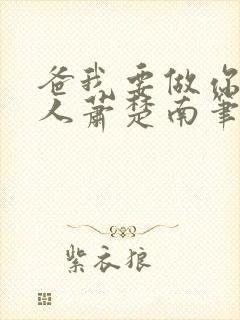 爸我要做你
人萧楚南笔
紫衣狼